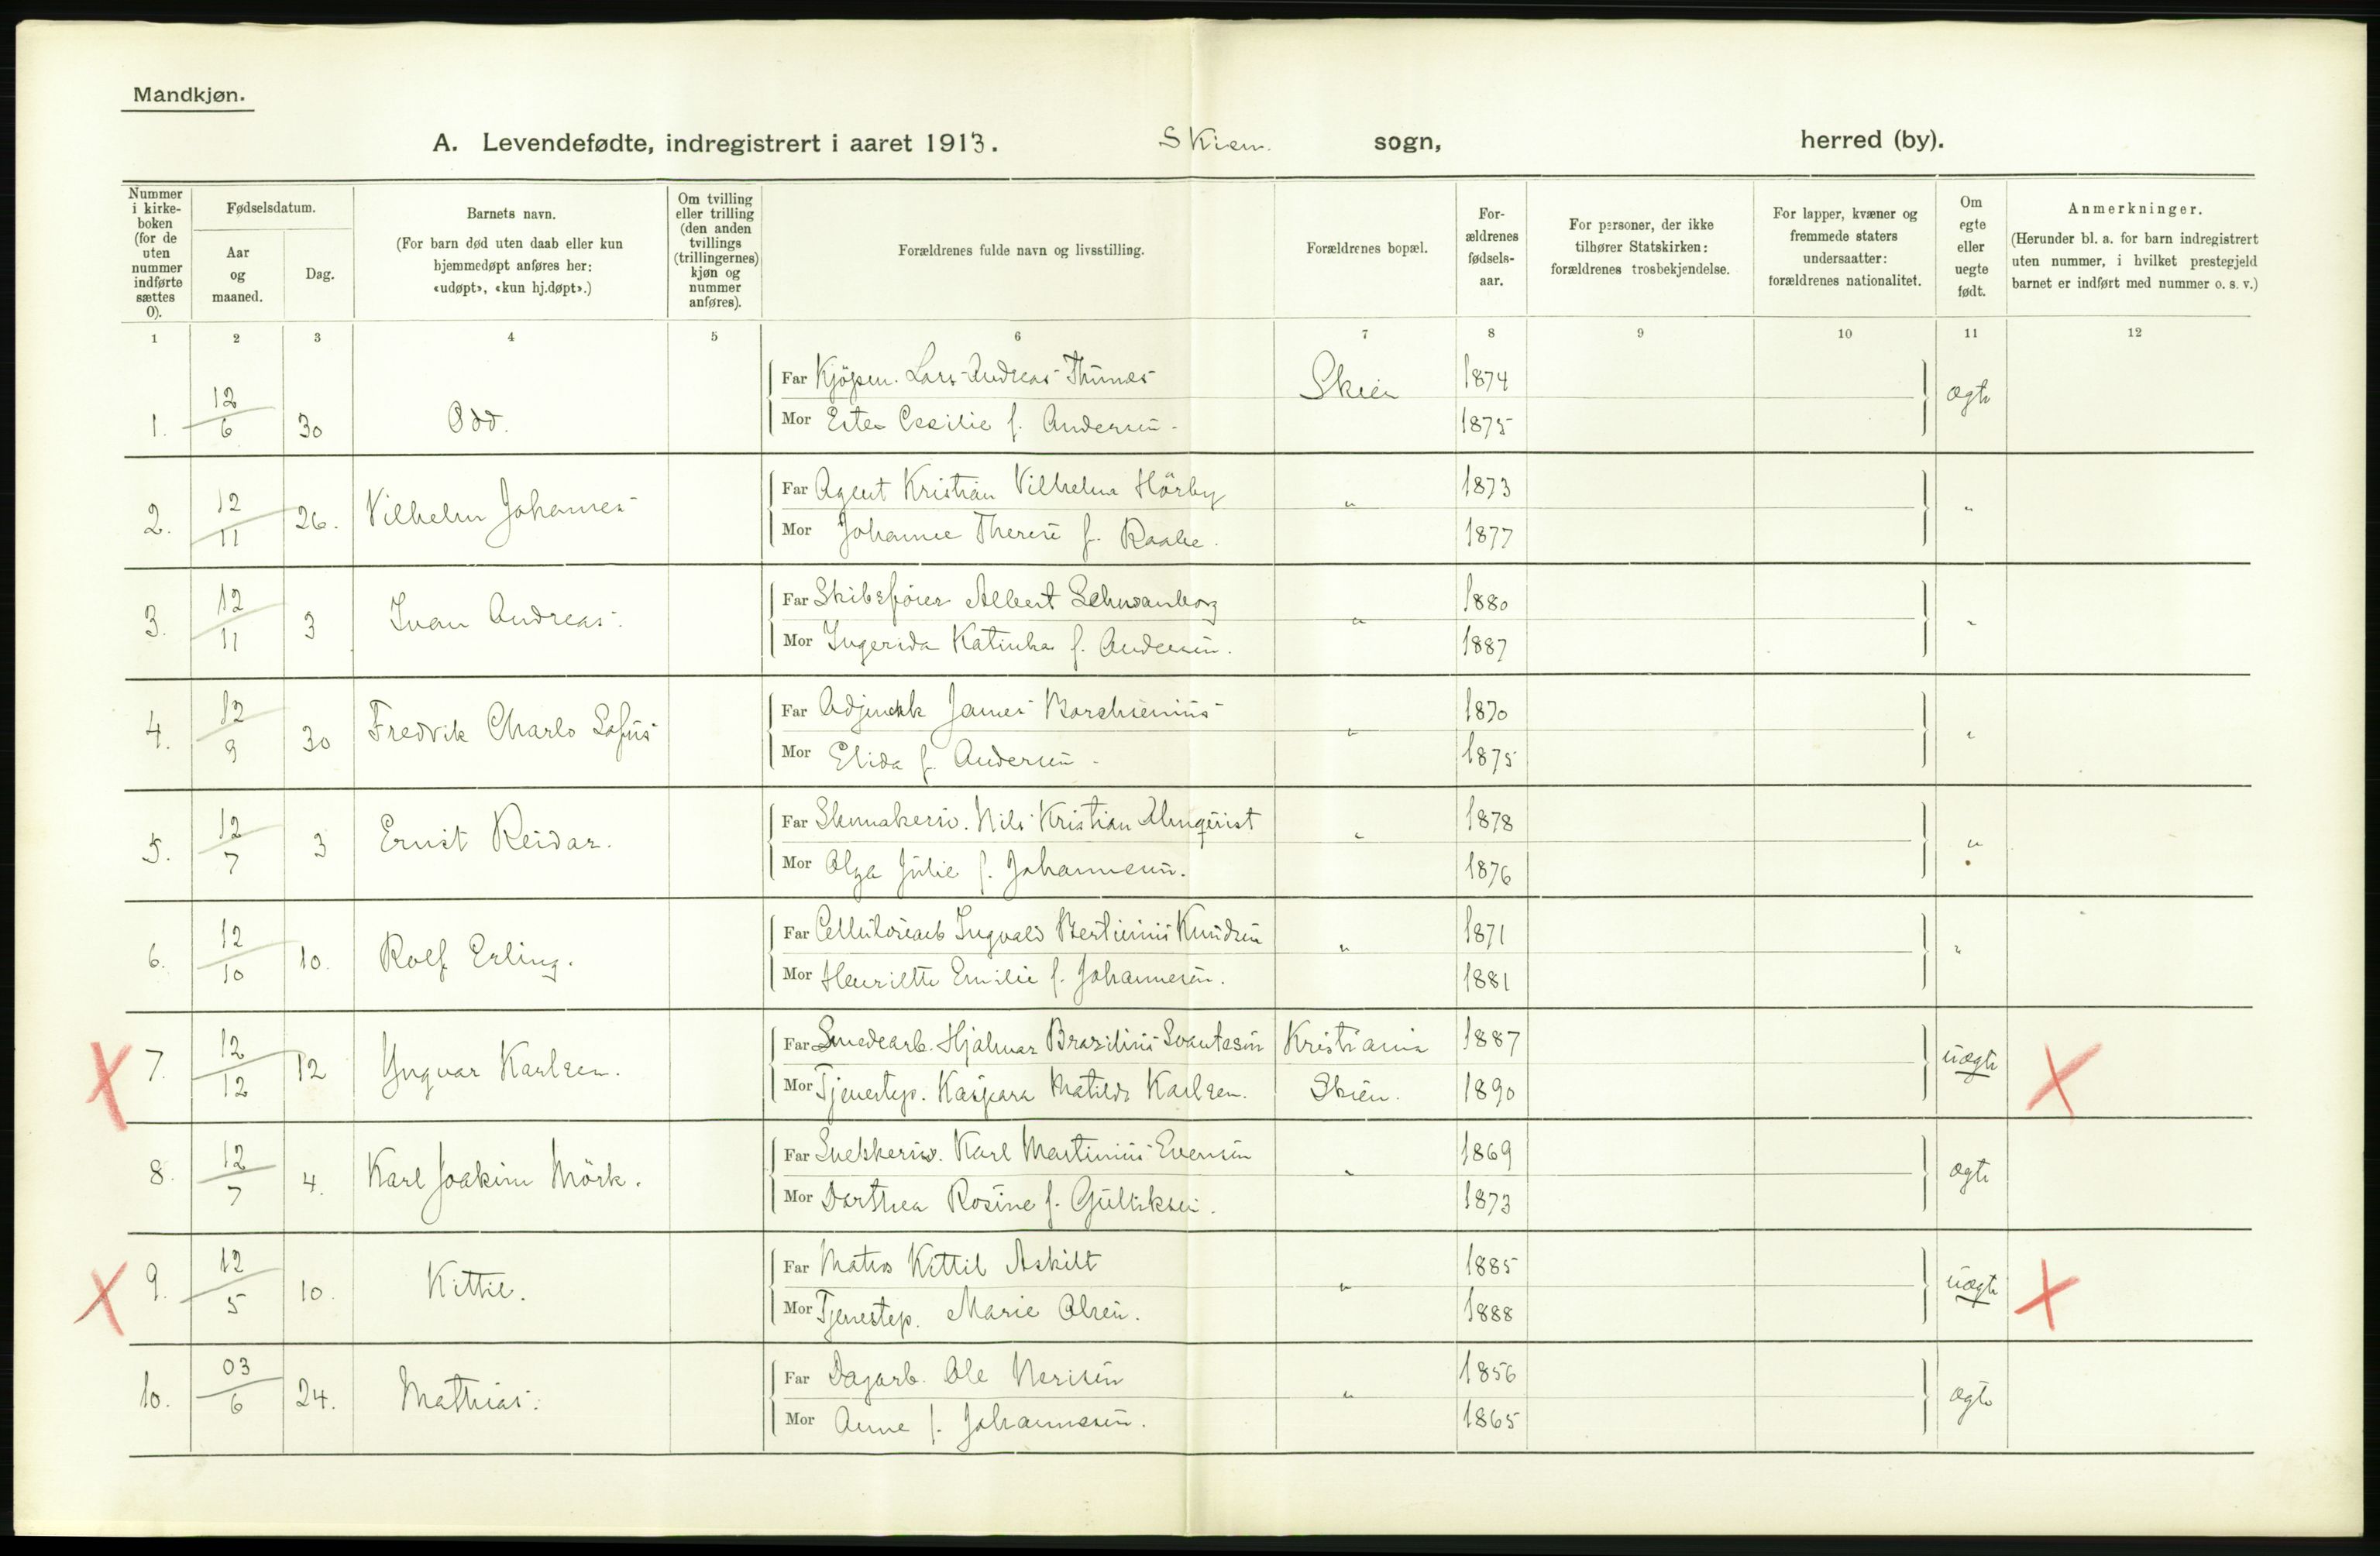 Mandkjøn.
A. Levendefødte, indregistrert i aaret 1913. Skien sogn, herred (by).
Nummer i kirke-boken (for de uten nummer indførte sættes 0).
Fødselsdatum.
Aar og maaned.
Dag.
Barnets navn.
(For barn død uten daab eller kun hjemmedøpt anføres her: «udøpt», «kun hj.døpt».)
Om tvilling eller trilling (den anden tvillings (trillingernes) kjøn og nummer anføres).
Forældrenes fulde navn og livsstilling.
Forældrenes bopæl.
For-ældrenes fødsels-aar.
For personer, der ikke tilhører Statskirken: forældrenes trosbekjendelse.
For lapper, kvæner og fremmede staters undersaatter: forældrenes nationalitet.
Om egte eller uegte født.
Anmerkninger.
(Herunder bl. a. for barn indregistrert uten nummer, i hvilket prestegjeld barnet er indført med nummer o. s. v.)
1 2 3 4 5 6 7 8 9 10 11 12
Far Kjöpm. Lars Andreas Thunes Skien 1874
1. 12/6 30 Odd. ægte
Mor Ester Cecilie f. Andersen. 1875
Far Agent Kristian Vilhelm Hörby " 1873
2. 12/11 26. Vilhelm Johannes "
Mor Johanne Therese f. Raabe. 1877
Far Skibsförer Albert Schwanborg " 1880
3. 12/11 3 Ivan Andreas. "
Mor Ingerida Katinka f. Andersen. 1887
Far Adjunkt James Borchsenius " 1870
4. 12/9 30 Fredrik Charls Sofus "
Mor Elida f. Andersen. 1875
Far Skomakersv. Nils Kristian Almqvist " 1878
5. 12/7 3 Ernst Reidar. "
Mor Olga Julie f. Johannesen. 1876
Far Cellulosearb Ingvald Bertinius Knudsen " 1871
6. 12/10 10. Rolf Erling. "
Mor Henriette Emilie f. Johannesen. 1881
Far Smedearb. Hjalmar Brazilius Svantesen Kristiania 1887
7. 12/12 12 Yngvar Karlsen. uægte
Mor Tjenestep. Kaspara Matilde Karlsen. Skien. 1890
Far Snekkersv. Karl Martinius Evensen " 1869
8. 12/7 4. Karl Joakim Mörk. ægte
Mor Dorthea Rosine f. Gulliksen. 1873
Far Matros Kittil Askilt " 1885
9. 12/5 10. Kittil. uægte
Mor Tjenestep. Marie Olsen. 1888
Far Dagarb. Ole Nerisen " 1856
10. 03/6 24. Mathias. ægte
Mor Anne f. Johannesen. 1865